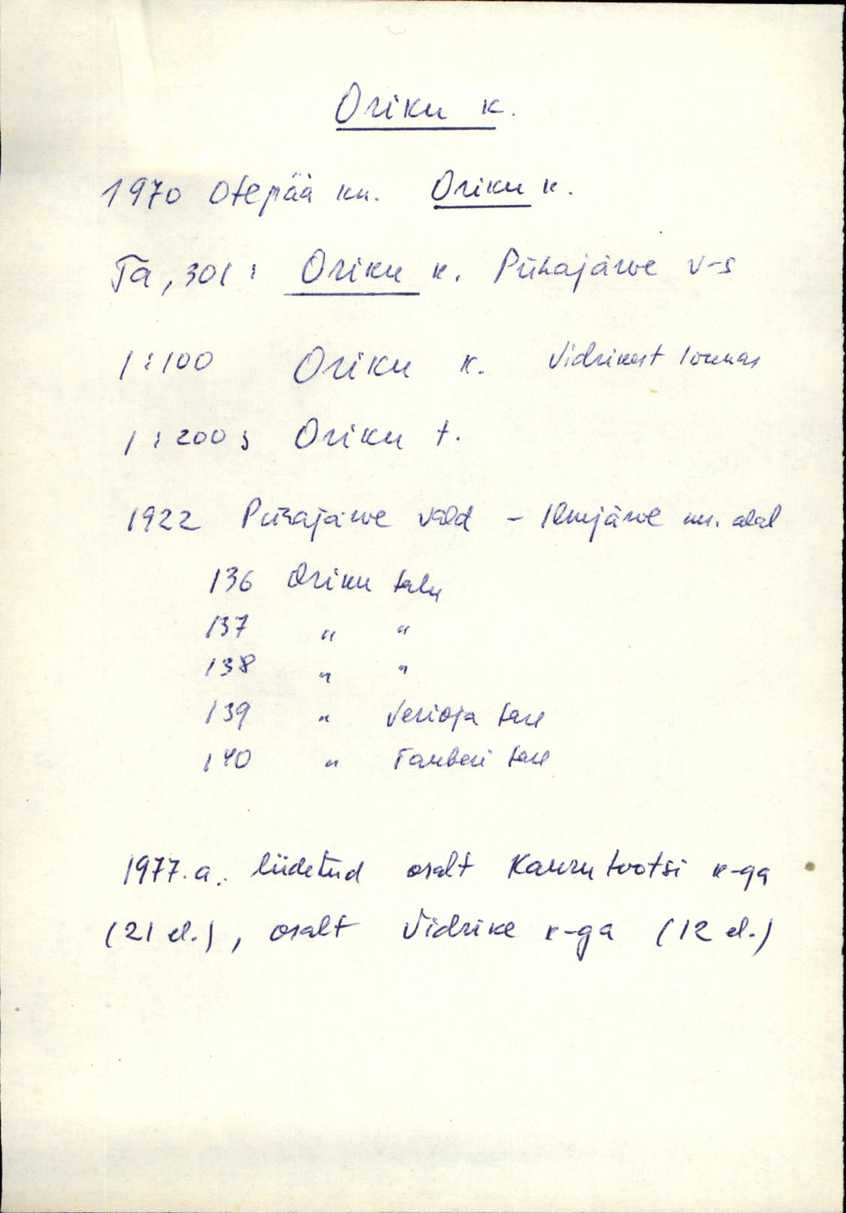 Oriku k.
1970 Otepää kn. Oriku k.
Ta, 301: Oriku k. Pühajärve v-s
1:100 Oriku k. Vidrikest lõunas
1:200; Oriku t.
1922 Pühajärve vald - Ilmjärve kn. alal
136 Oriku talu
137 " "
138 " "
139 " Verioja tare
140 " Tamberi tare
1977.a. liidetud osalt Kaurutootsi k-ga
(21 el.), osalt Vidrike k-ga (12 el.)